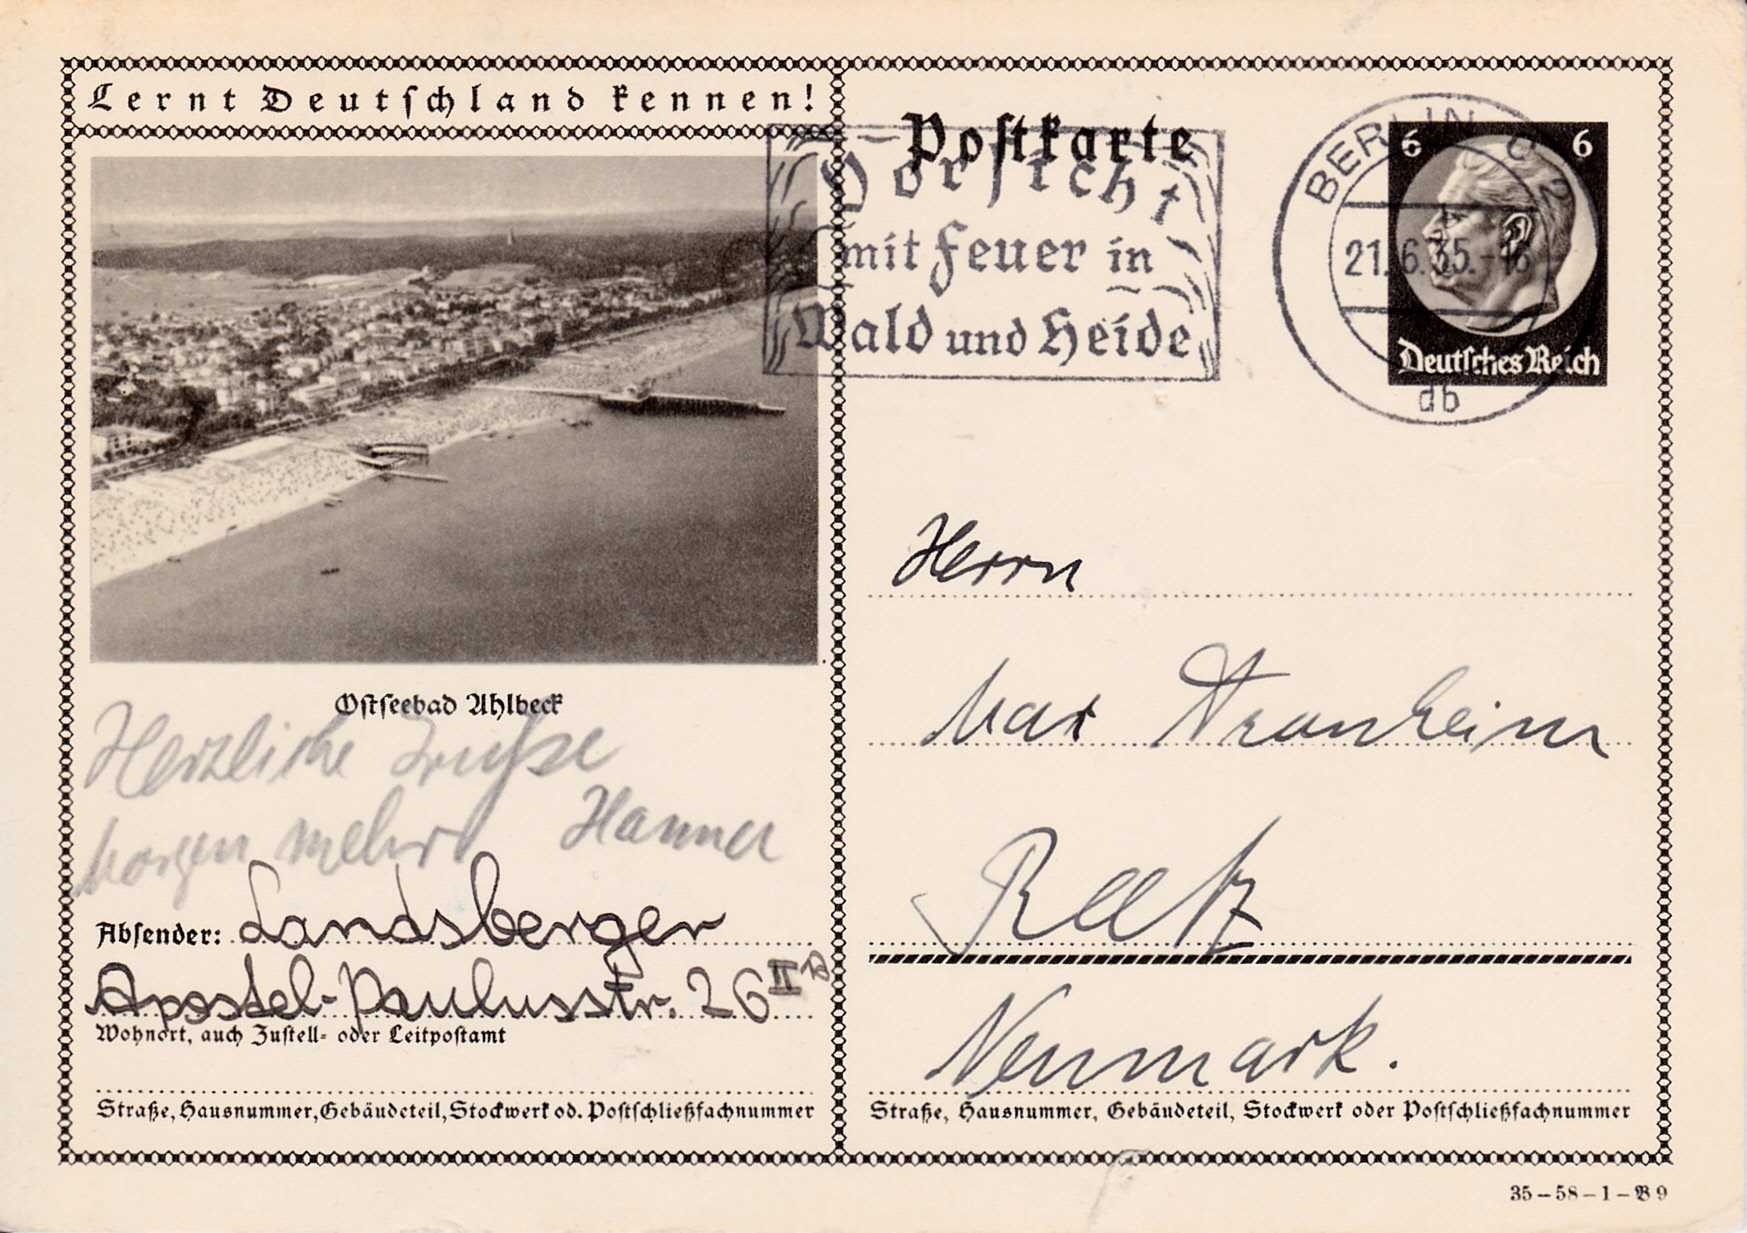 Lernt Deutschland kennen!
Postkarte
Vorsicht
mit Feuer in
Wald und Heide
BERLIN C 2
21.6.35.-16
db
6 6
Deutsches Reich
Ostseebad Ahlbeck
Herzliche Grüße
Morgen mehr! Hanna
Absender: Landsberger
Apostel-Paulusstr. 26 II
Wohnort, auch Zustell- oder Leitpostamt
Straße, Hausnummer, Gebäudeteil, Stockwerk od. Postschließfachnummer
Herrn
Max
Reetz
Neumark.
Straße, Hausnummer, Gebäudeteil, Stockwerk oder Postschließfachnummer
35-58-1-B9